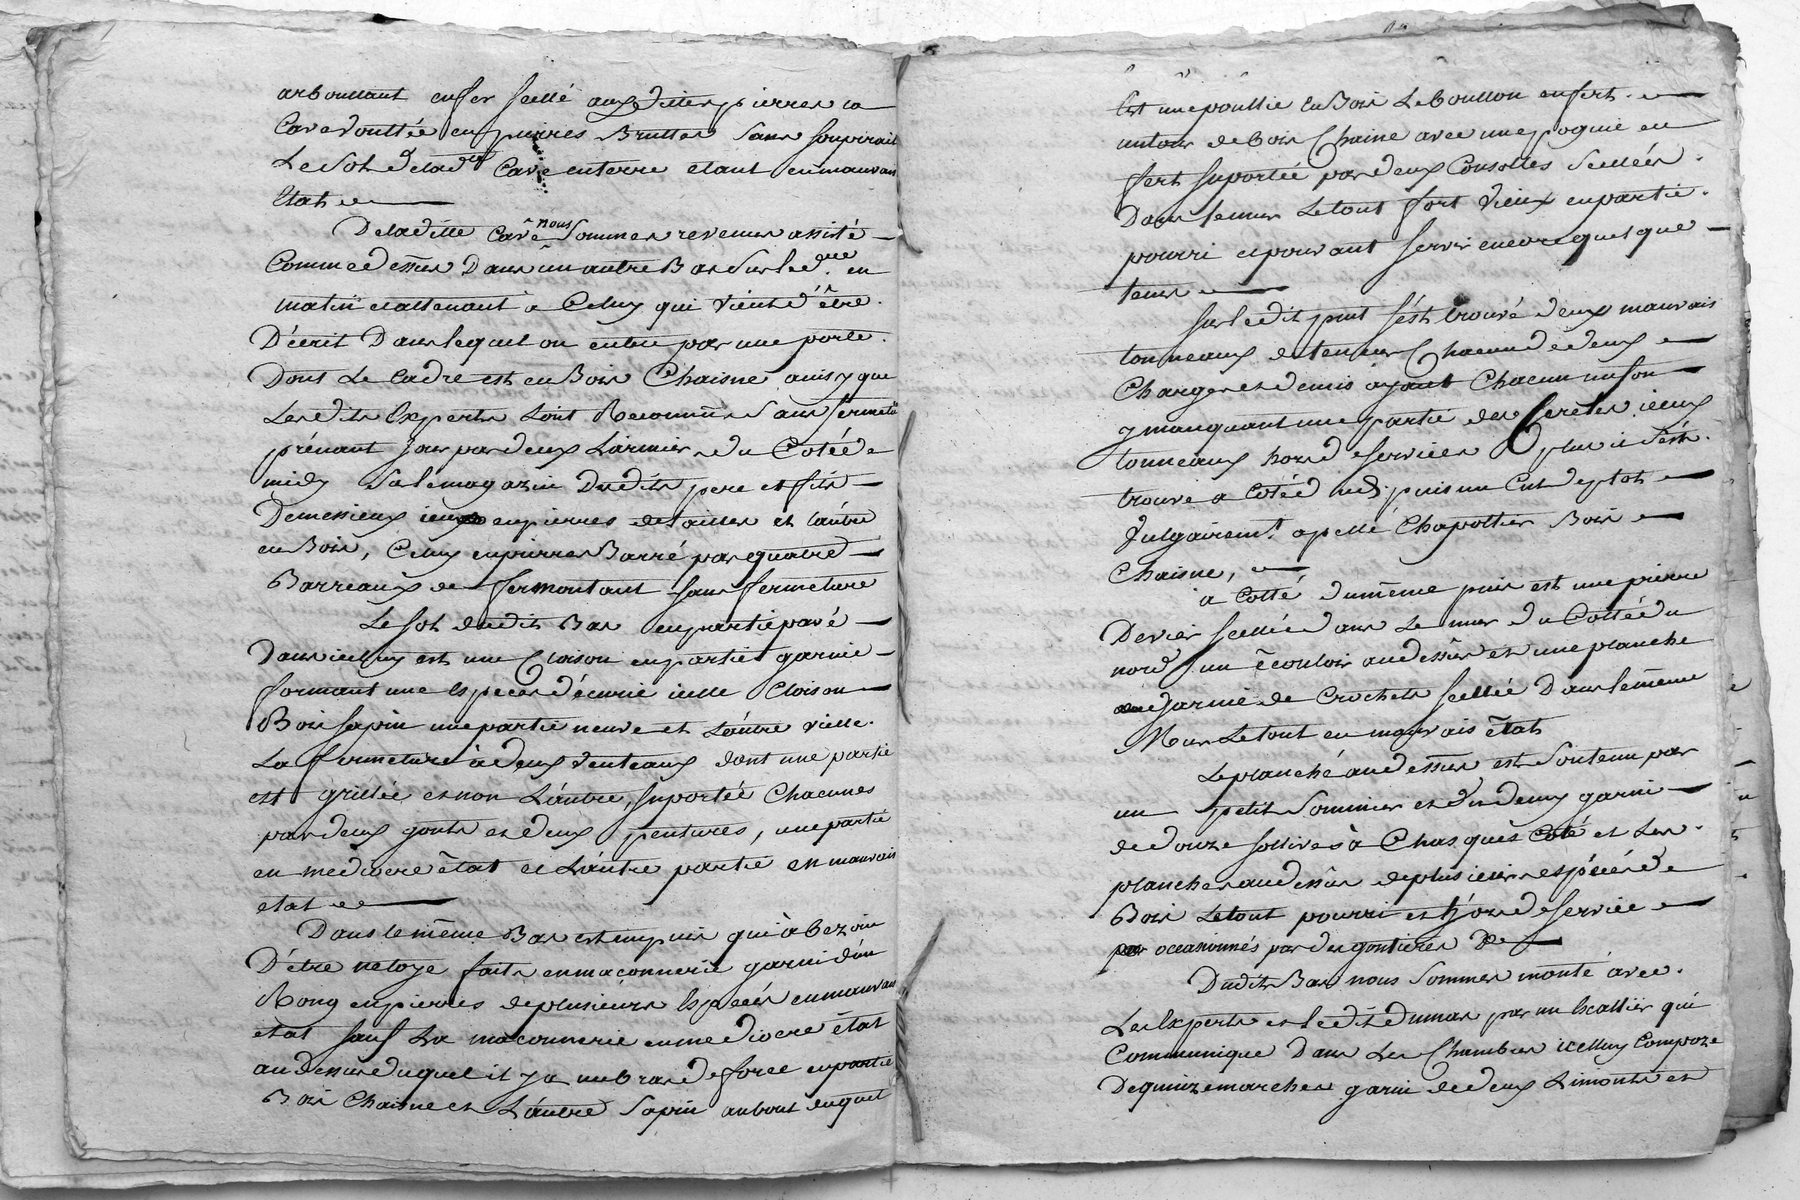 arboullant en fer scellé aux dittes pierres la
Cave voultée en pierres Bruttes sans soupirail
Le Sol de lad.e Cave en terre etant en mauvais
Etat
De la ditte Cave nous Sommes revenus assisté
Comme dessus Dans un autre Bas sur led. en
matin et attenant à Celuy qui vient d'être
Décrit Dans lequel on entre par une porte
Dont Le Cadre est en Bois Chaisne ainsy que
Lesdits Experts L'ont Reconnu sans fermeté
prénant jour par deux Larmiers du Coté de
midy sur le magazin Dudits pere et fils
Demessieux un en pierres de tailles et l'autre
en Bois, Celuy en pierres Barré par quatre
Barreaux de fer montant sans fermeture
Le Sol dudit Bas en partie pavé
Dans icelluy est une Cloison en partie garnie
formant une Espece d'écurie icelle Cloison
Bois sapin une partie neuve et L'autre vielle
La fermeture à deux venteaux dont une partie
est grillée et non L'autre, suportée Chacunes
par deux gonds et deux pentures, une partie
en mediocre êtat et L'autre partie en mauvais
etat
Dans le même Bas est un puis qui à bezoin
D'être netoyé fait en maconnerie garni d'un
Rong en pierres de plusieurs Espéces en mauvais
etat sauf La maconnerie en mediocre état
au dessus duquel il y a un bras de force en partie
Bois Chaisne et L'autre Sapin au bout duquel
Est une poullie en Bois Le boullon en fert
un tour de bois Chaine avec une pognie en
fert suportée par deux Consolles Scellées
Dans le mur Le tout fort vieux en partie
pourri et pouvant servir encore quelque
tems
Sur ledit puit s'est trouvé deux mauvais
tonneaux de teneur Chacun de deux
Charges et demis ayant Chacun un fon
y manquant une partie des Cercles iceux
tonneaux hors de services plus il s'est
trouvé a Coté dudi puis un Cul de ptot
vulgairem.t apellé Chapottier Bois
Chaisne,
à Cotté du même puis est une pierre
D'evier scellée dans Le mur du Cotté du
nord un êcouloir au dessus et une planche
garnie de Crochets scellée Dans le même
Mur Le tout en mauvais êtat
Le planché au dessus est Soutenu par
un petit Sommier et d'un deux garni
de douze sollives à Chasques Coté et Les
planches au dessus de plusieurs espéces de
Bois Le tout pourri et hors de service
occasionnés par des goutieres
Dudit Bas nous Sommes monté avec
Les Experts et ledit dumas par un Escallier qui
Communique Dans Les Chambres icelluy Compozé
De quinze marches garni de deux Limonts et